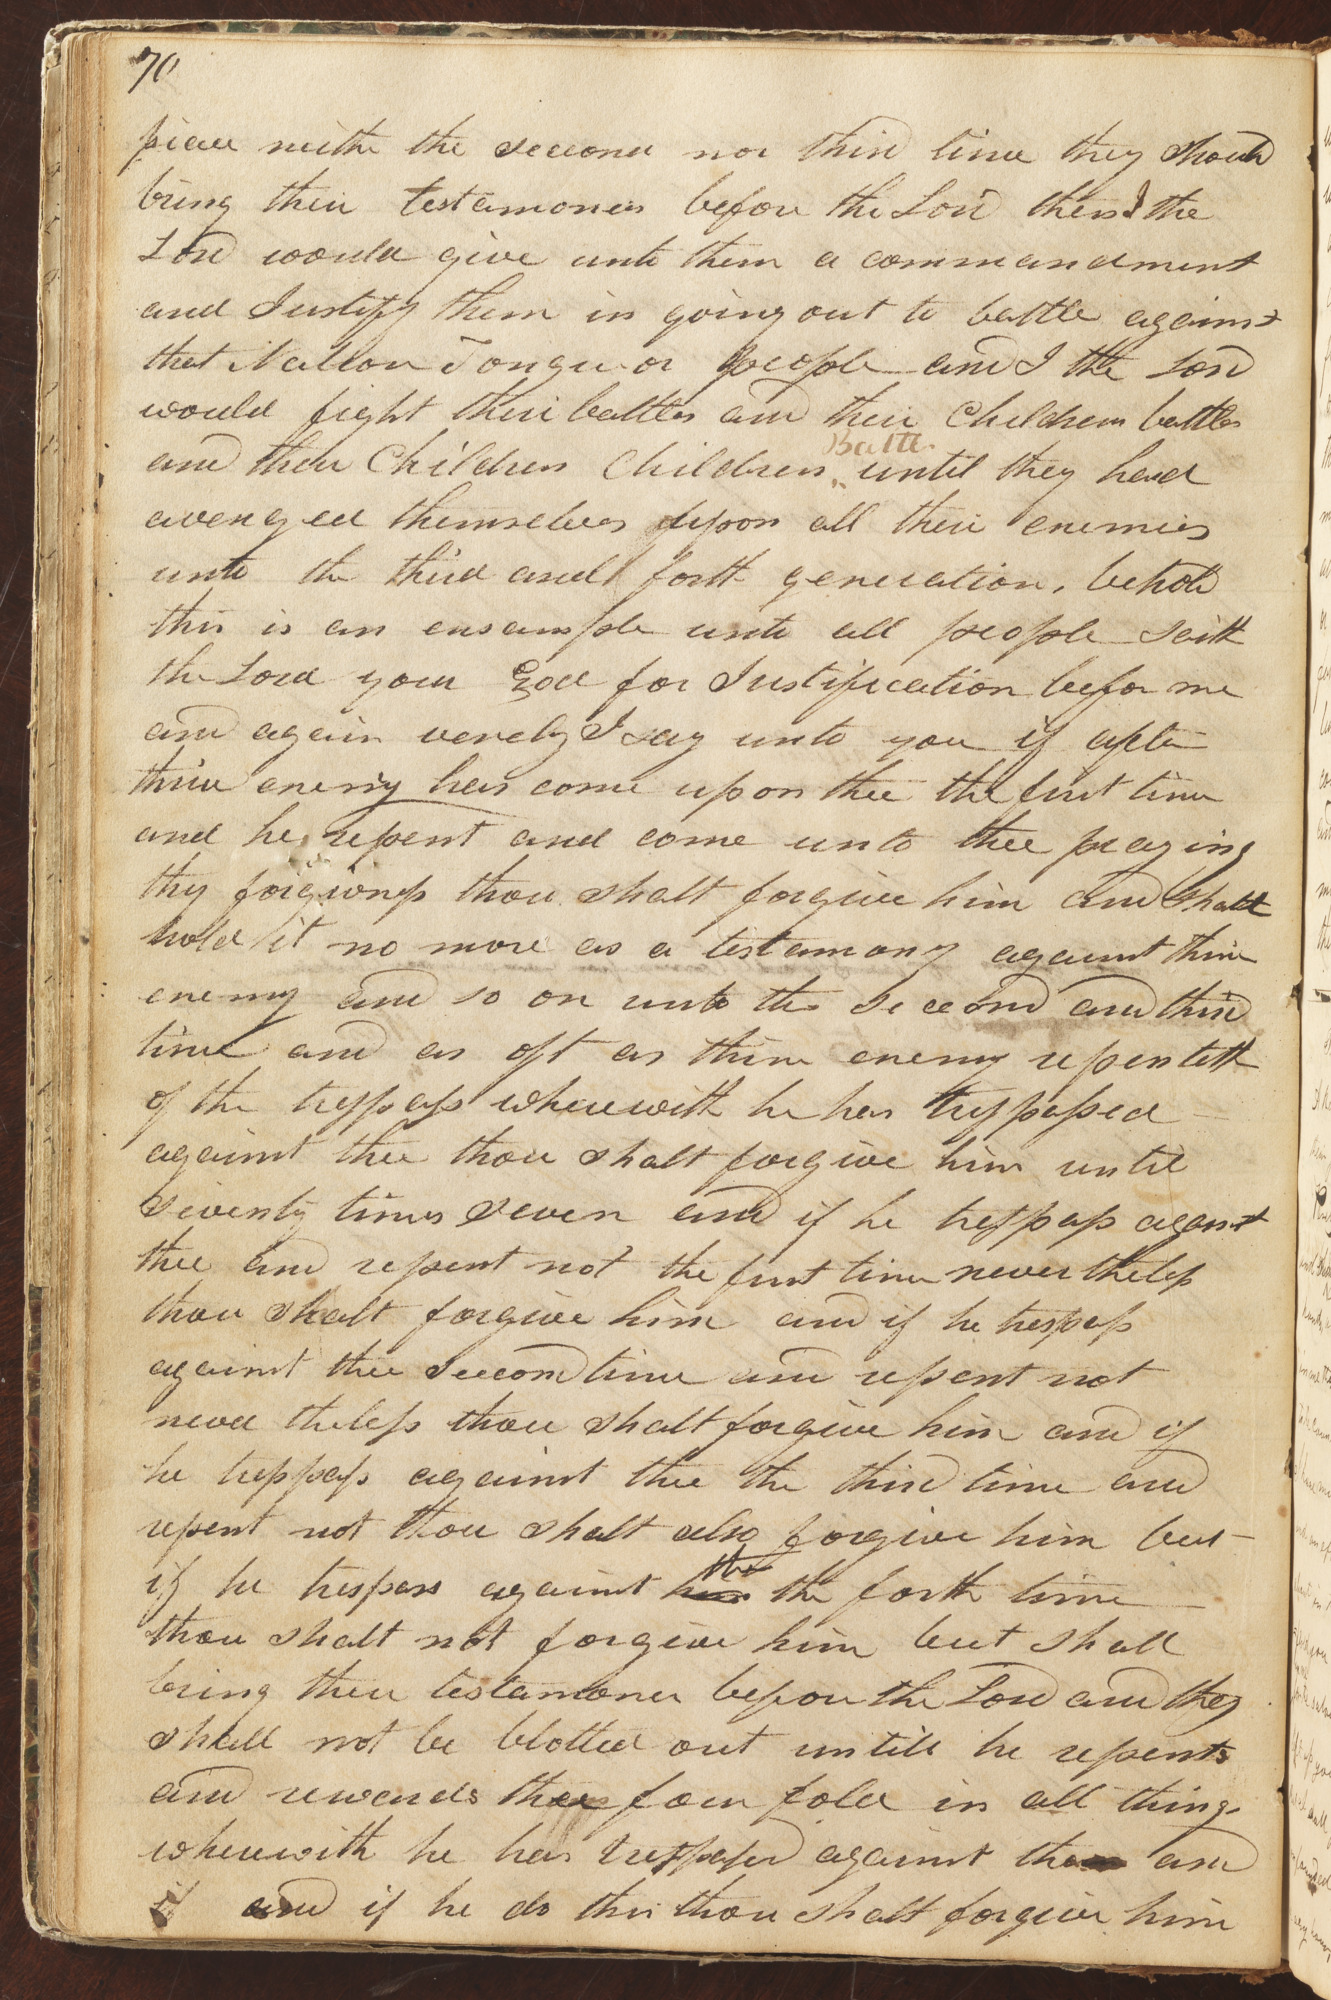 70
piece neithe the second nor third time they should
bring their testamones before the Lord then I the
Lord would give unto them a commandment
and Justify them in going out to battle against
that Nation Tongue or people and I the Lord
would fight their battles and their Childrem battles
and their Children Childrens Battle until they had
avenged themselves upon all their enemies
unto the third and forth generation, behold
this is an ensample unto all people saith
the Lord your God for Justification befor me
and again verely I say unto you if after
thine enemy has come upon thee the first time
and he repent and come unto thee praying
thy forgivness thou shalt forgive him and shalt
hold it no more as a testamony against thine
enemy and so on unto the second and third
time and as oft as thine enemy repenteth
of the tresspass wherewith he has tresspassed
against thee thou shalt forgive him until
seventy times seven and if he tresspass against
thee and repent not the first time nevertheless
thou shalt forgive him and if he trespass
against thee second time and repent not
never theless thou shalt forgive him and if
he tresspass against thee the third time and
repent not thou shalt also forgive him but
if he trespass against the the forth time
thou shalt not forgive him but shall
bring these testamones before the Lord and they
shall not be blotted out untill he repents
and rewards thee four fold in all things
wherewith he has tresspased against thee and
if and if he do this thou shalt forgive him